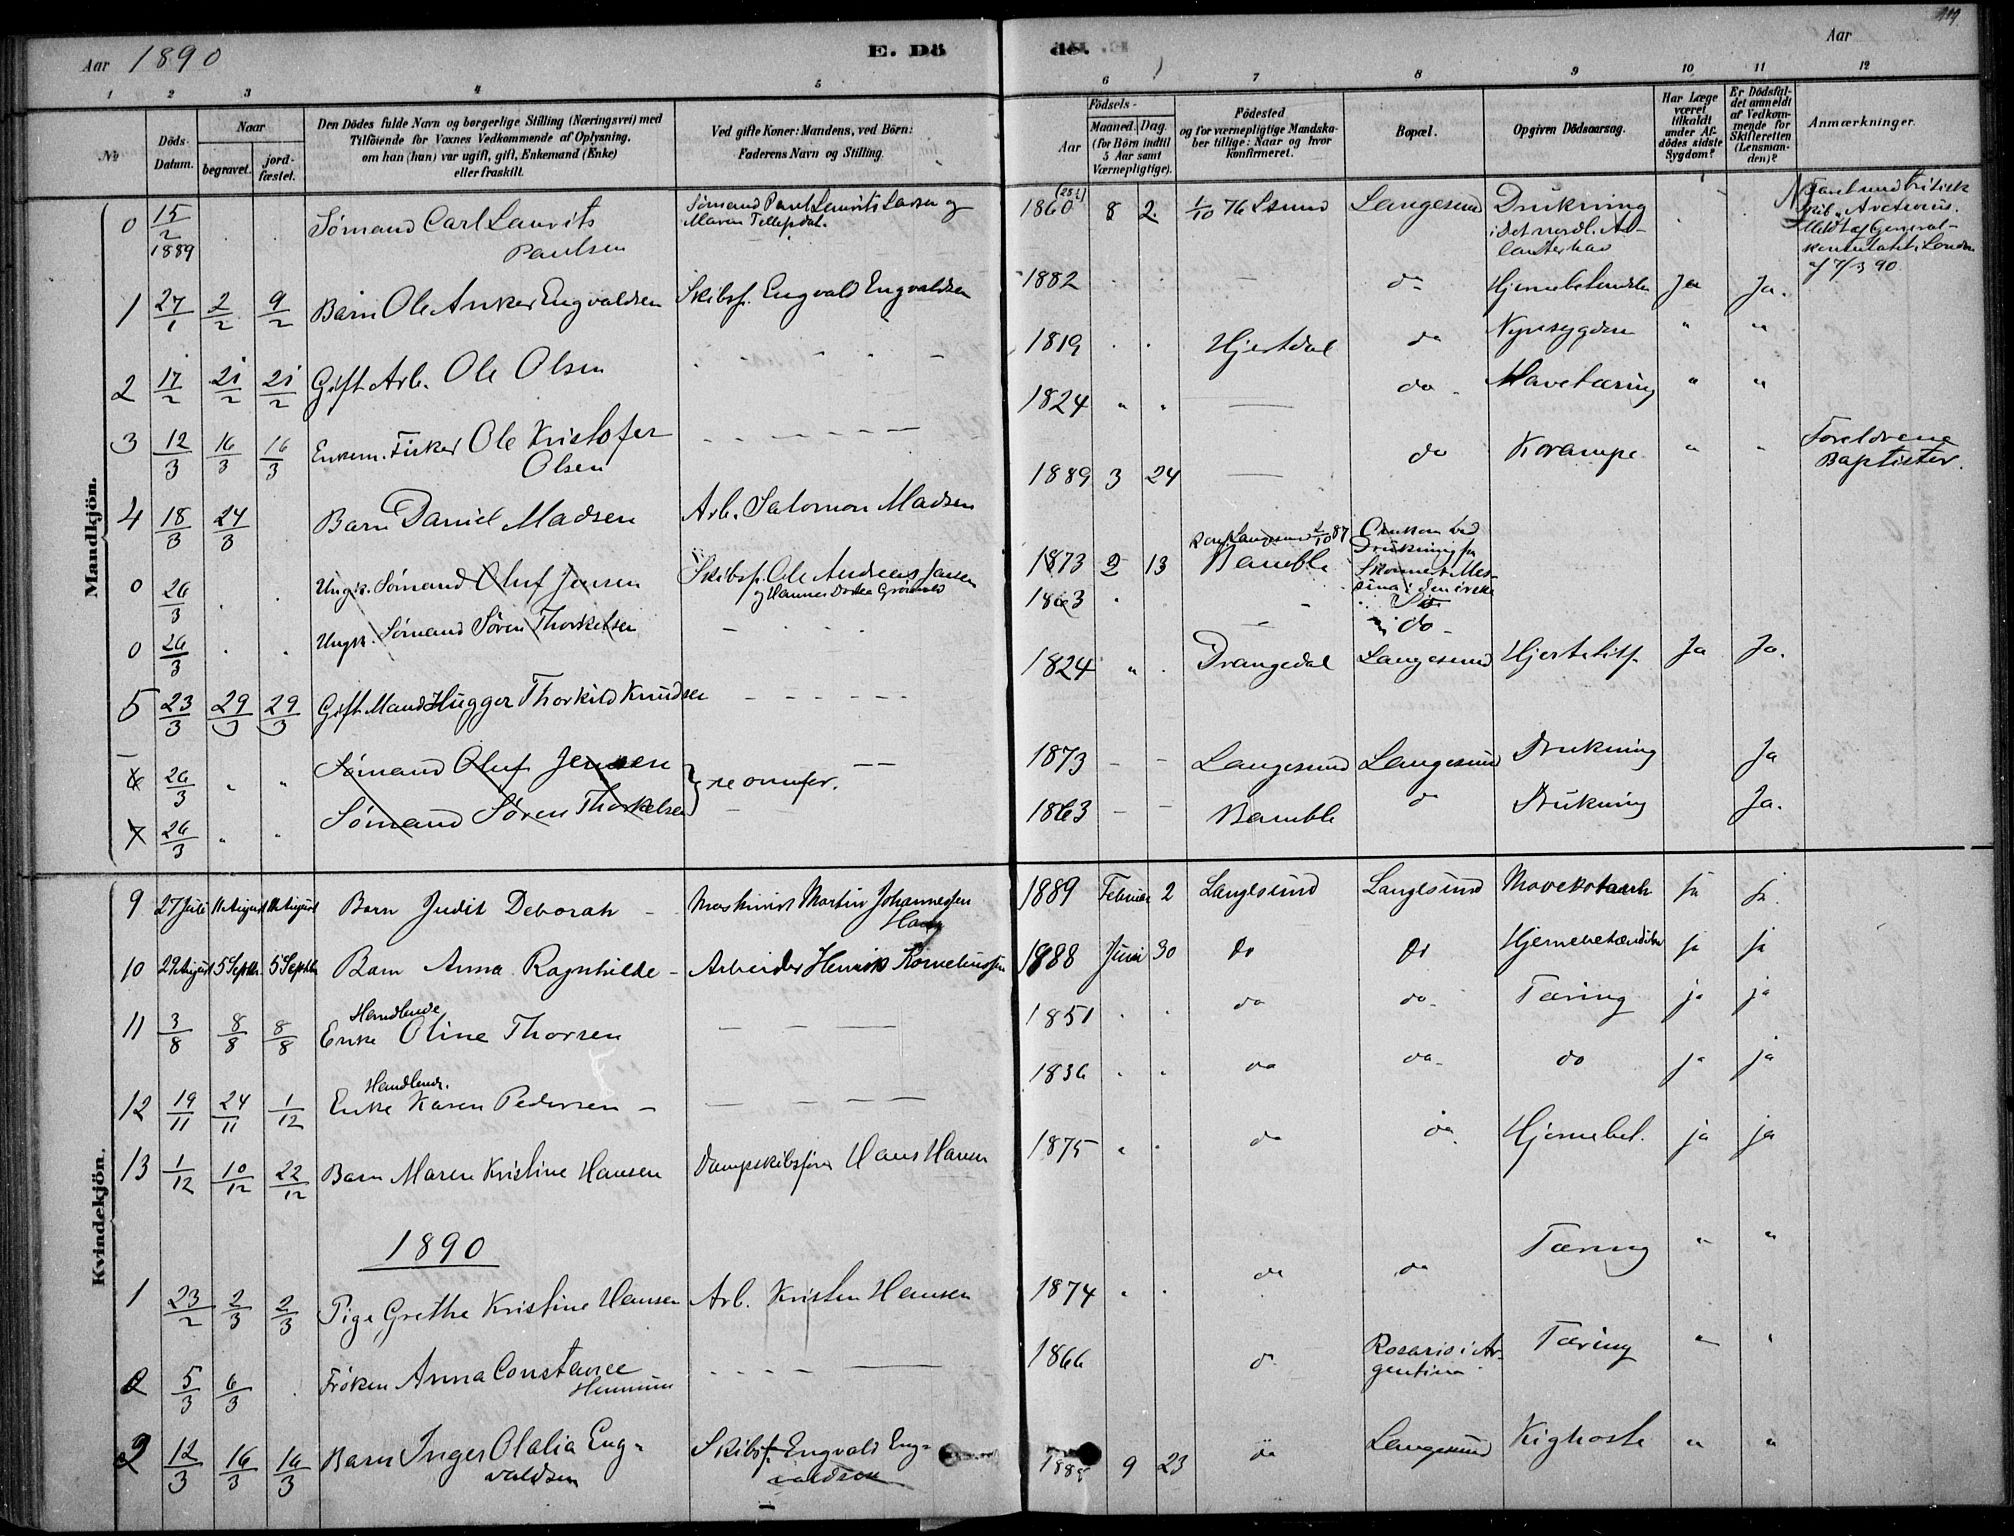 Aar 1890 E. Dö de. Aar
1 2 3 4 5 6 7 8 9 10 11 12
No
Döds-Datum.
Naar
begravet.
jord-fæstet.
Den Dödes fulde Navn og borgerlige Stilling (Næringsvei) med
Tilföiende for Voxnes Vedkommende af Oplysning,
om han (hun) var ugift, gift, Enkemand (Enke)
eller fraskilt.
Ved gifte Koner: Mandens, ved Börn:
Faderens Navn og Stilling.
Födsels-
Aar
Maaned. Dag.
(for Börn indtil
5 Aar samt
Værnepligtige).
Födested
og for værnepligtige Mandska-
ber tillige: Naar og hvor
konfirmeret.
Bopæl.
Opgiven Dödsaarsag.
Har Læge
været
tilkaldt
under Af-
dödes sidste
Sygdom?
Er Dödsfal-
det anmeldt
af Vedkom-
mende for
Skifteretten
(Lensman-
den)?
Anmærkninger.
Mandkjön.
0 15/2 1889 Sømand Carl Laurits Paulsen Sømand Paul Laurits Larsen og Maren Tellefsdat. 1860 8 2. 1/10 76 Lsund Langesund Drukning i det nordl. Atlanterhav
af 7/3 90
1 27/1 2/2 9/2 Barn Ole Anker Engvaldsen Skibsf. Engvald Engvaldsen 1882 . . — do Hjernebetændelse Ja Ja.
2 17/2 21/2 21/2 Gift Arb. Ole Olsen 1819 . . Hjertdal do Nyresygdom " "
3 12/3 16/3 16/3 Enkem. Fisker Ole Kristofer Olsen 1824 " " — do Mavetæring " "
4 18/3 24/3 Barn Daniel Madsen Arb. Salomon Madsen 1889 3 24 — do Krampe " " Foreldrene Baptister.
0 26/3 . . Ungk. Sømand Oluf Jensen Skibsf. Ole Andreas Jensen og Hanna Dortea 1873 2 13 Bamble Omkom ved Drukning
0 26/3 . . Ungk. Sømand Søren Thorkelsen 1863 " — do
5 23/3 29/3 29/3 Gift Mand Hugger Thorkild Knudsen 1824 " . Drangedal Langesund Hjertelidf. Ja Ja.
6 26/3 " " Sømand Oluf Jensen } se ovenfor. 1873 — — Langesund Langesund Drukning Ja
7 26/3 " " Sømand Søren Thorkelsen 1863 — — Bamble do Drukning Ja.
Kvindekjön.
9 27 Juli 11 August 11 August Barn Judit Deborah Maskinist Martin Johannessen 1889 Februar 2 Langesund Langesund Ja ja.
10 29 August 5 Septbr 5 Septbr Barn Anna Ragnhilde — Arbeider Henrik Korneliussen 1888 Juni 30 do do Hjernebetændelse ja ja
11 3/8 8/8 8/8 Handlende Enke Oline Thorsen 1851 . . do do Tæring ja ja
12 19/11 24/11 1/12 Handlende. Enke Karen Pedersen — 1836 . . do do do ja ja
13 1/12 10/12 22/12 Barn Maren Kristine Hansen Dampskibsfører Hans Hansen 1875 " . do do Hjernebet. ja ja
1890
1 23/2 2/3 2/3 Pige Grethe Kristine Hansen Arb. Kristen Hansen 1874 " . do do Tæring " "
2 5/3 6/3 . Frøken Anna Constance Hummun 1866 do Rosario i Argentina Tæring " "
3 12/3 16/3 16/3 Barn Inger Olalia Engvaldsen Skibsf. Engvald Engvaldsen 1888 9 23 do Langesund Kighoste " "